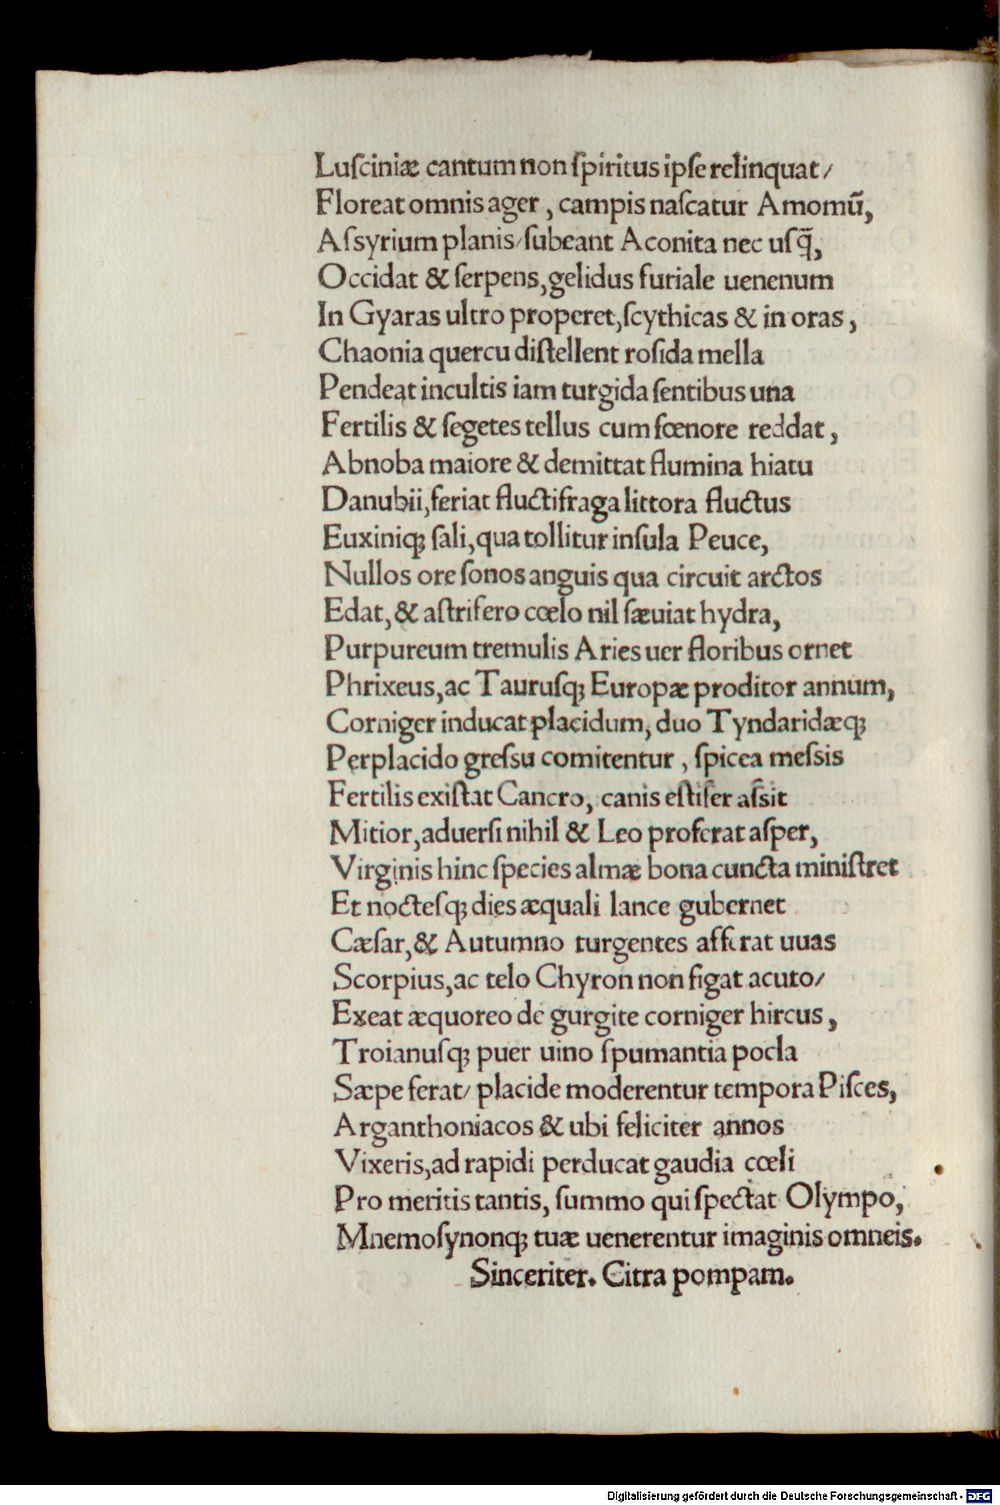 Luſciniæ cantum non ſpiritus ipſe relinquat/
Floreat omnis ager , campis naſcatur Amomū,
Aſsyrium planis/ſubeant Aconita nec uſq̄,
Occidat & ſerpens,gelidus furiale uenenum
In Gyaras ultro properet,ſcythicas & in oras ,
Chaonia quercu diſtellent roſida mella
Pendeat incultis iam turgida ſentibus una
Fertilis & ſegetes tellus cum fœnore reddat ,
Abnoba maiore & demittat flumina hiatu
Danubii,feriat fluctifraga littora fluctus
Euxiniqꝫ ſali,qua tollitur inſula Peuce,
Nullos ore ſonos anguis qua circuit arctos
Edat,& aſtrifero cœlo nil ſæuiat hydra,
Purpureum tremulis Aries uer floribus ornet
Phrixeus,ac Tauruſqꝫ Europæ proditor annum,
Corniger inducat placidum, duo Tyndaridæqꝫ
Perplacido greſsu comitentur , ſpicea meſsis
Fertilis exiſtat Cancro, canis eſtifer aſsit
Mitior,aduerſi nihil & Leo proferat aſper,
Virginis hinc ſpecies almæ bona cuncta miniſtret
Et nocteſqꝫ dies æquali lance gubernet
Cæſar,& Autumno turgentes afferat uuas
Scorpius,ac telo Chyron non figat acuto/
Exeat æquoreo de gurgite corniger hircus ,
Troianuſqꝫ puer uino ſpumantia pocla
Sæpe ferat/ placide moderentur tempora Piſces,
Arganthoniacos & ubi feliciter annos
Vixeris,ad rapidi perducat gaudia cœli
Pro meritis tantis, ſummo qui ſpectat Olympo,
Mnemoſynonqꝫ tuæ uenerentur imaginis omneis.
Sinceriter. Citra pompam.
Digitalisierung gefördert durch die Deutsche Forschungsgemeinschaft - DFG